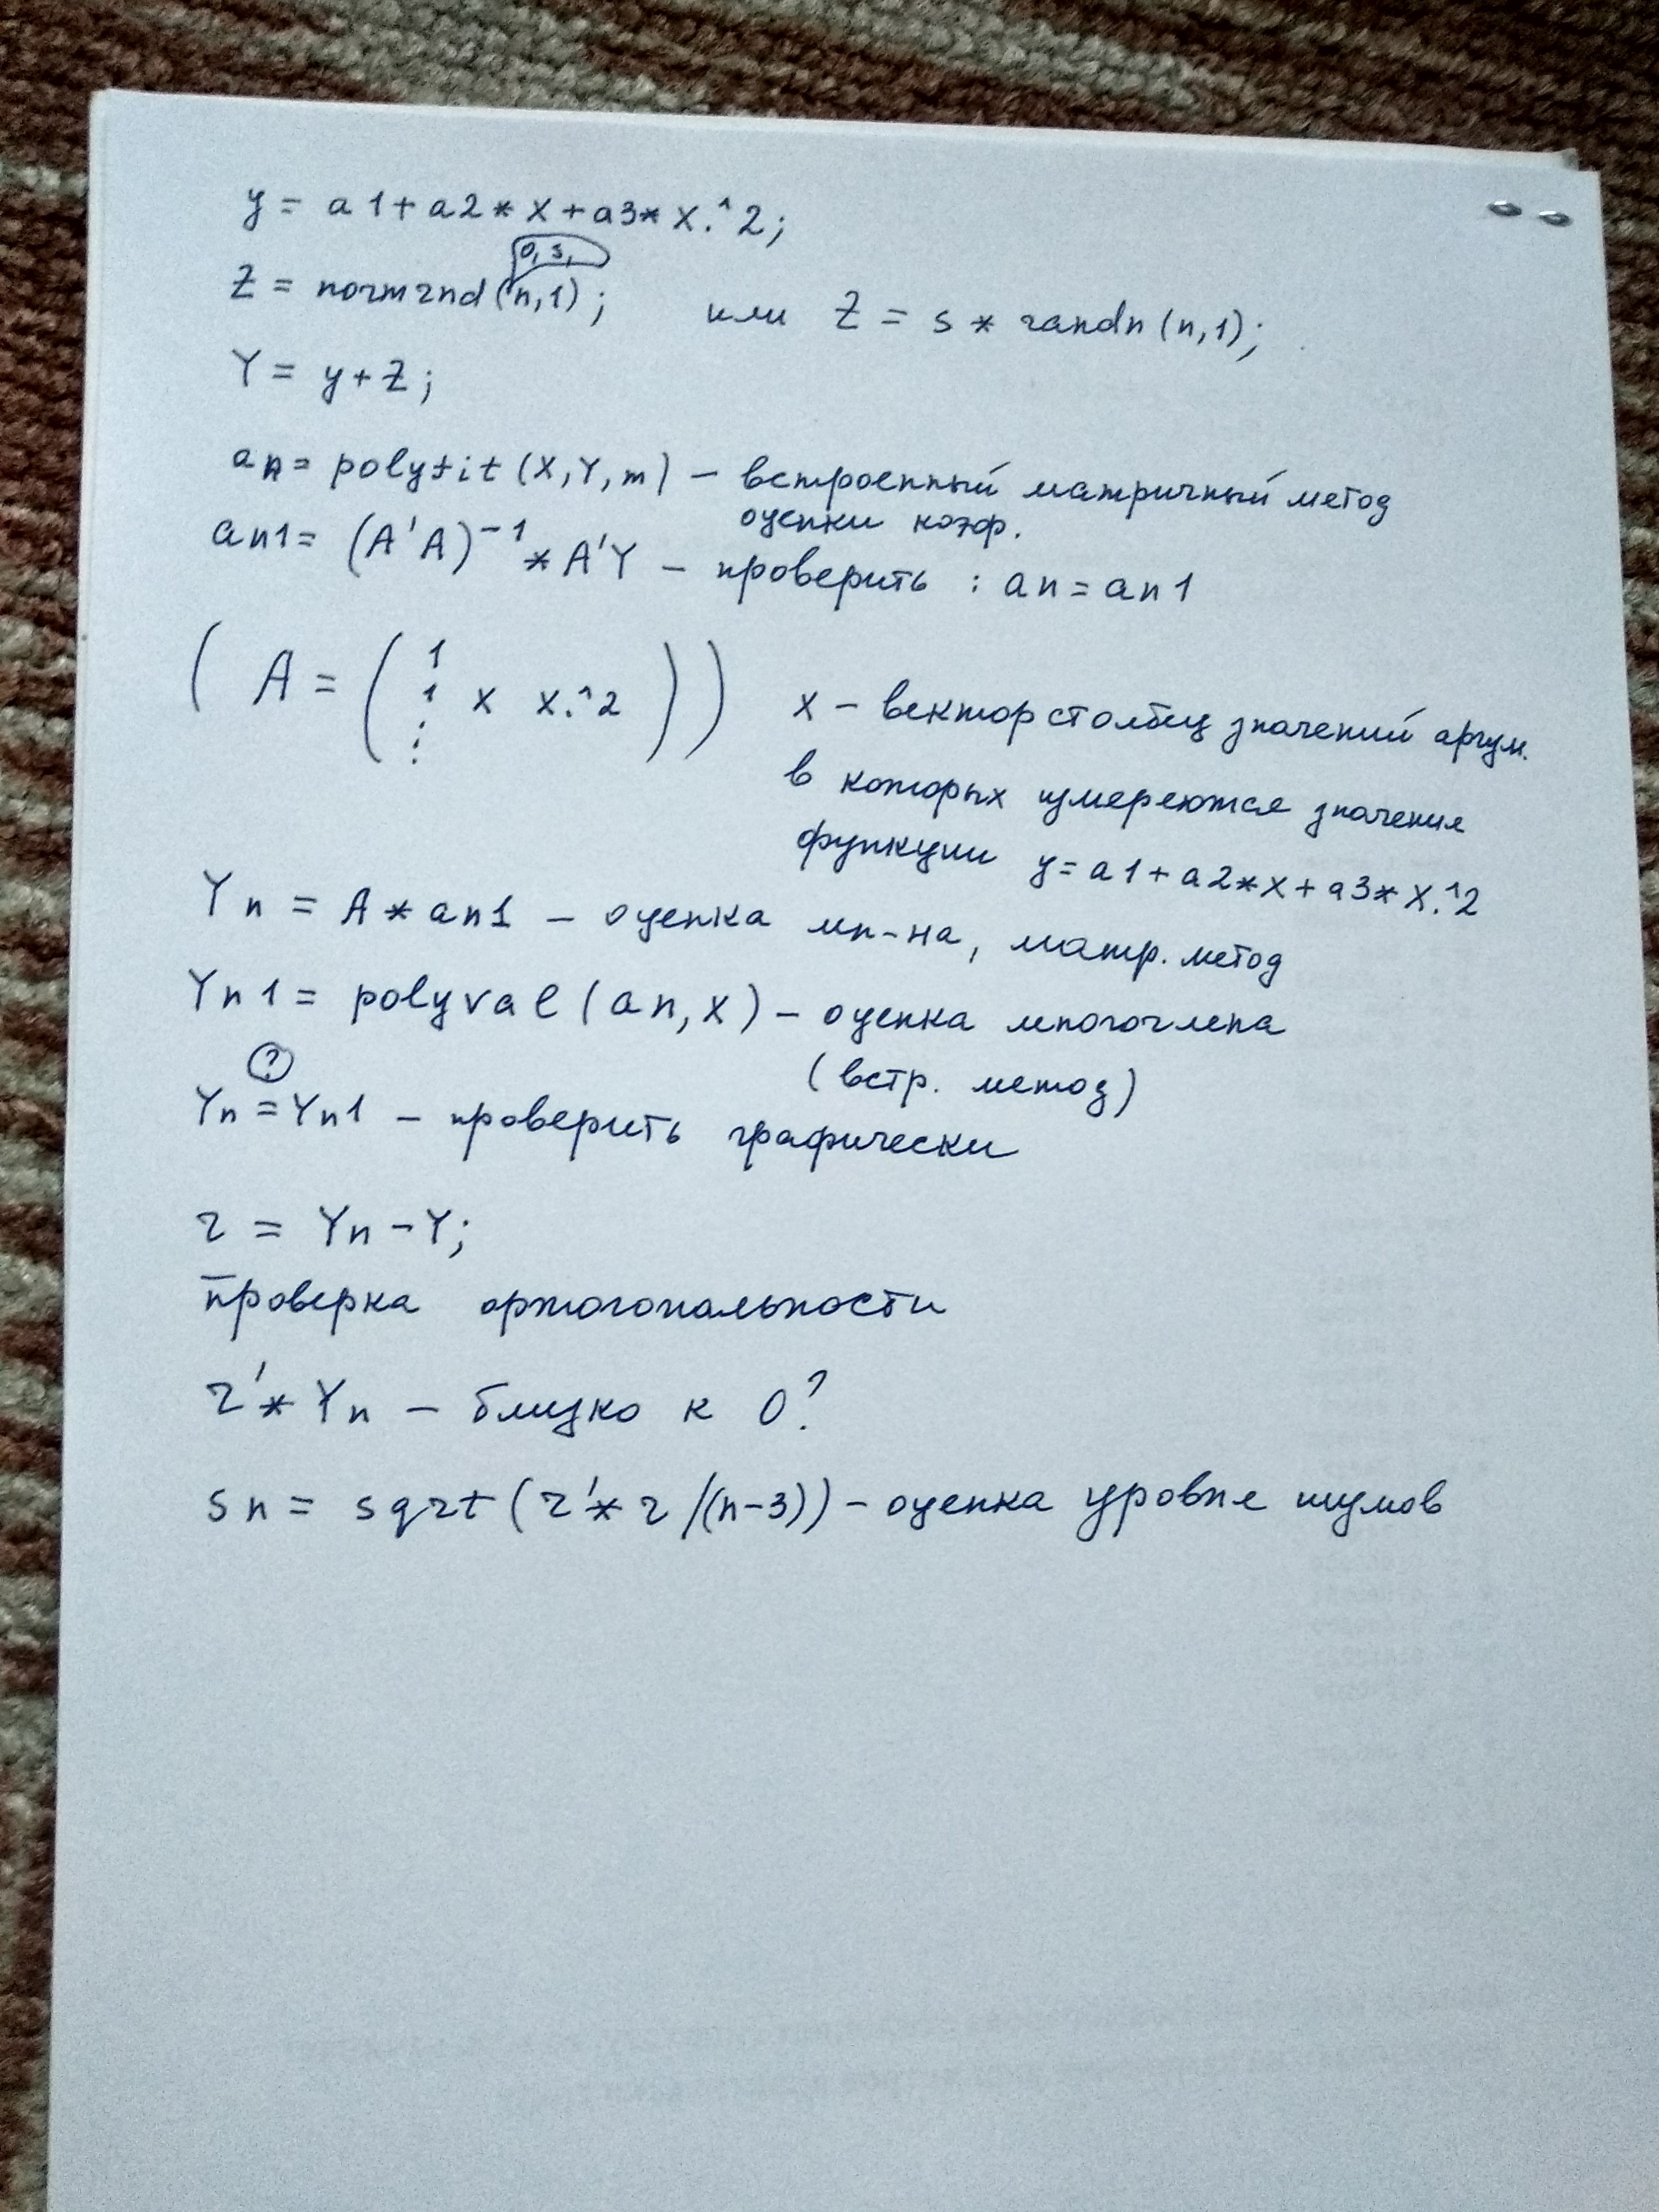 y = a1+a2*x+a3*x.^2;
0, s,
Z = normrnd(n,1); или Z = s*randn(n,1);
Y = y+Z;
an = polyfit(x,Y,m) – встроенный матричный метод
оценки коэф.
an1 = (A'A)^-1 * A'Y – проверить : an = an1
( A = ( 1 1 ⋮ x x.^2 ) ) x – вектор столбец значений аргум.
в которых измеряются значения
функции y=a1+a2*x+a3*x.^2
Yn = A*an1 – оценка мн-на, матр. метод
Yn1 = polyval(an,x) – оценка многочлена
(встр. метод)
?
Yn = Yn1 – проверить графически
r = Yn-Y;
Проверка ортогональности
r'*Yn – близко к 0?
sn = sqrt(r'*r/(n-3)) – оценка уровня шумов